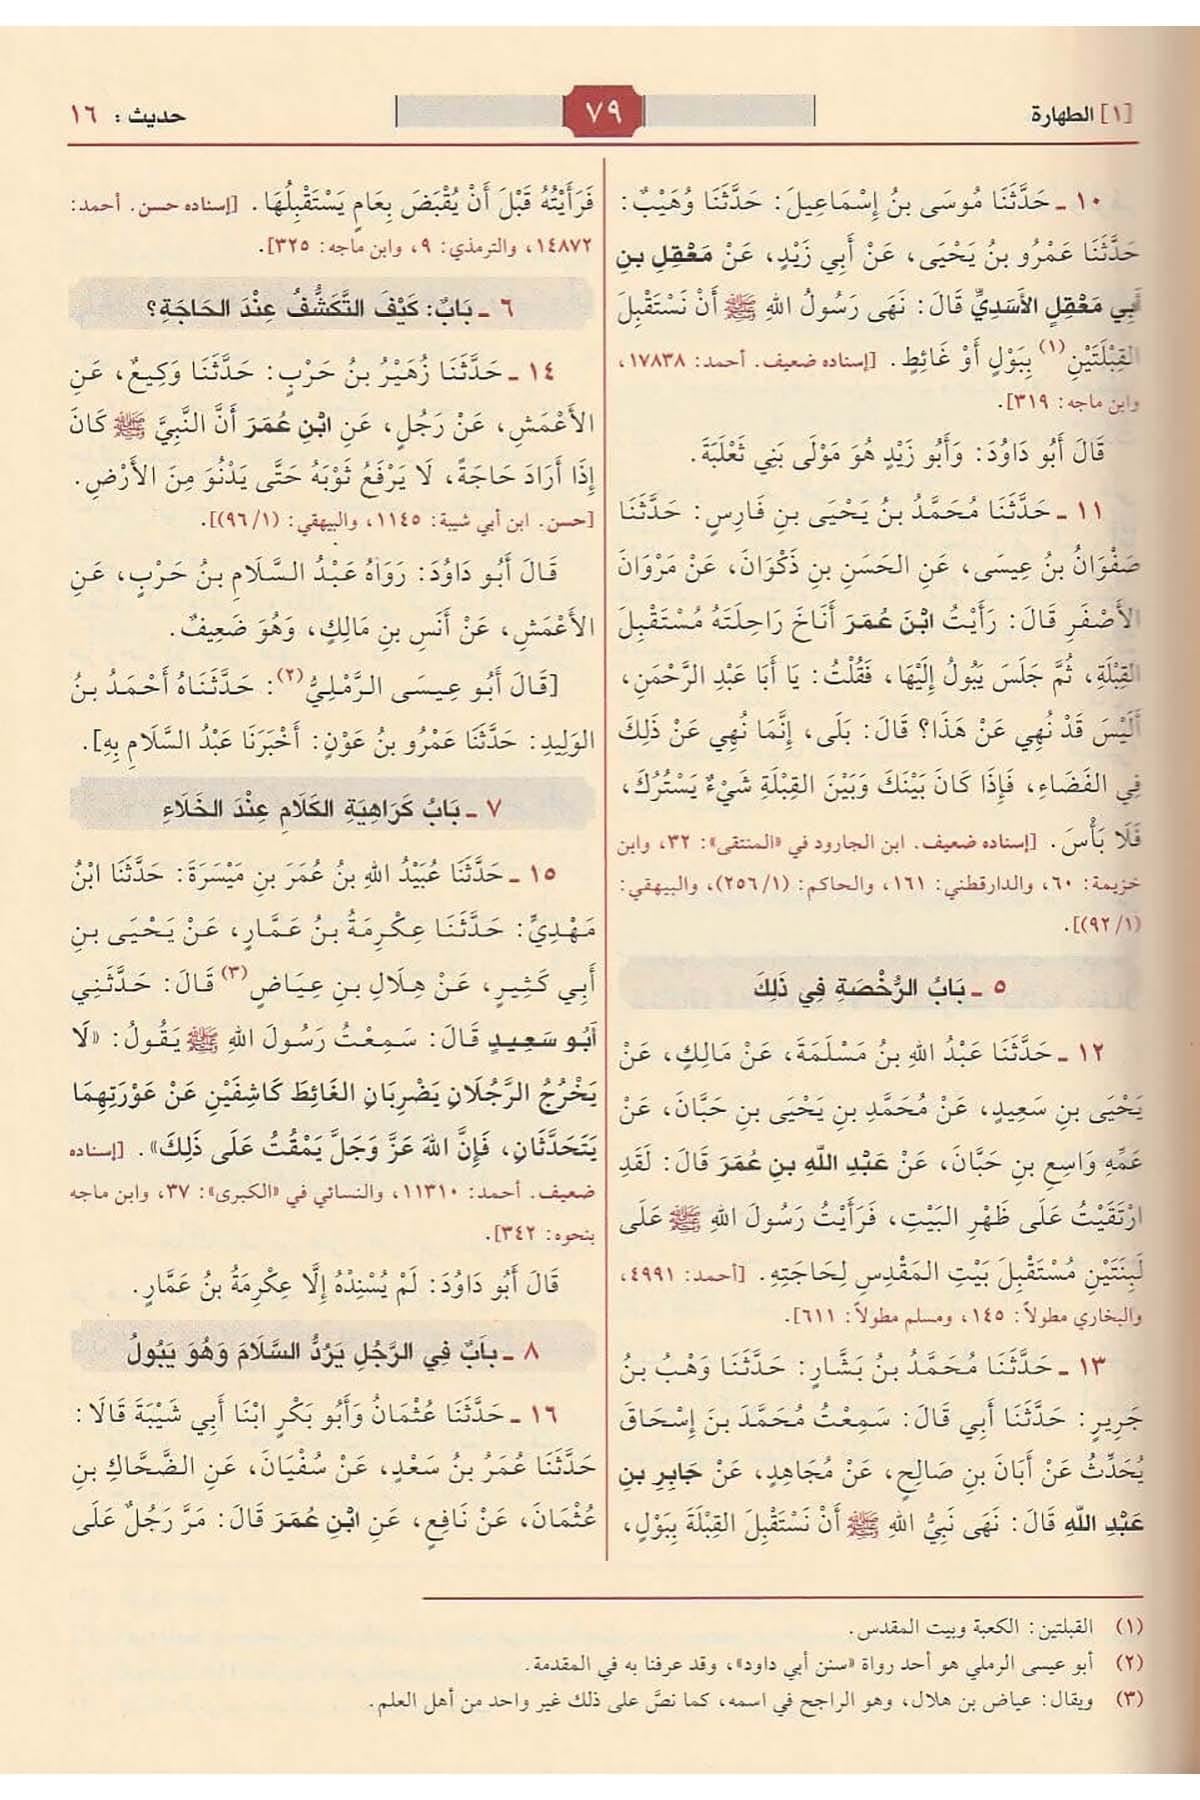 [١] الطهارة
٧٩
حديث : ١٦
١٠ ـ حَدَّثَنَا مُوسَى بنُ إِسْمَاعِيلَ: حَدَّثَنَا وُهَيْبٌ:
حَدَّثَنَا عَمْرُو بنُ يَحْيَى، عَنْ أَبِي زَيْدٍ، عَنْ مَعْقِلِ بنِ
أَبِي مَعْقِلٍ الأَسَدِيِّ قَالَ: نَهَى رَسُولُ اللهِ ﷺ أَنْ نَسْتَقْبِلَ
القِبْلَتَيْنِ(١) بِبَوْلٍ أَوْ غَائِطٍ. [إسناده ضعيف. أحمد: ١٧٨٣٨،
وابن ماجه: ٣١٩].
قَالَ أَبُو دَاوُدَ: وَأَبُو زَيْدٍ هُوَ مَوْلَى بَنِي ثَعْلَبَةَ.
١١ ـ حَدَّثَنَا مُحَمَّدُ بنُ يَحْيَى بنِ فَارِسٍ: حَدَّثَنَا
صَفْوَانُ بنُ عِيسَى، عَنِ الحَسَنِ بنِ ذَكْوَانَ، عَنْ مَرْوَانَ
الأَصْفَرِ قَالَ: رَأَيْتُ ابْنَ عُمَرَ أَنَاخَ رَاحِلَتَهُ مُسْتَقْبِلَ
القِبْلَةِ، ثُمَّ جَلَسَ يَبُولُ إِلَيْهَا، فَقُلْتُ: يَا أَبَا عَبْدِ الرَّحْمَنِ،
أَلَيْسَ قَدْ نُهِيَ عَنْ هَذَا؟ قَالَ: بَلَى، إِنَّمَا نُهِيَ عَنْ ذَلِكَ
فِي الفَضَاءِ، فَإِذَا كَانَ بَيْنَكَ وَبَيْنَ القِبْلَةِ شَيْءٌ يَسْتُرُكَ،
فَلَا بَأْسَ. [إسناده ضعيف. ابن الجارود في «المنتقى»: ٣٢، وابن
خزيمة: ٦٠، والدارقطني: ١٦١، والحاكم: (١/ ٢٥٦)، والبيهقي:
(١/ ٩٢)].
٥ ـ بَابُ الرُّخْصَةِ فِي ذَلِكَ
١٢ ـ حَدَّثَنَا عَبْدُ اللهِ بنُ مَسْلَمَةَ، عَنْ مَالِكٍ، عَنْ
يَحْيَى بنِ سَعِيدٍ، عَنْ مُحَمَّدِ بنِ يَحْيَى بنِ حَبَّانَ، عَنْ
عَمِّهِ وَاسِعِ بنِ حَبَّانَ، عَنْ عَبْدِ اللَّهِ بنِ عُمَرَ قَالَ: لَقَدِ
ارْتَقَيْتُ عَلَى ظَهْرِ البَيْتِ، فَرَأَيْتُ رَسُولَ اللهِ ﷺ عَلَى
لَبِنَتَيْنِ مُسْتَقْبِلَ بَيْتِ المَقْدِسِ لِحَاجَتِهِ. [أحمد: ٤٩٩١،
والبخاري مطولاً: ١٤٥، ومسلم مطولاً: ٦١١].
١٣ ـ حَدَّثَنَا مُحَمَّدُ بنُ بَشَّارٍ: حَدَّثَنَا وَهْبُ بنُ
جَرِيرٍ: حَدَّثَنَا أَبِي قَالَ: سَمِعْتُ مُحَمَّدَ بنَ إِسْحَاقَ
يُحَدِّثُ عَنْ أَبَانَ بنِ صَالِحٍ، عَنْ مُجَاهِدٍ، عَنْ جَابِرِ بنِ
عَبْدِ اللَّهِ قَالَ: نَهَى نَبِيُّ اللهِ ﷺ أَنْ نَسْتَقْبِلَ القِبْلَةَ بِبَوْلٍ،
فَرَأَيْتُهُ قَبْلَ أَنْ يُقْبَضَ بِعَامٍ يَسْتَقْبِلُهَا. [إسناده حسن. أحمد:
١٤٨٧٢، والترمذي: ٩، وابن ماجه: ٣٢٥].
٦ ـ بَابٌ: كَيْفَ التَّكَشُّفُ عِنْدَ الحَاجَةِ؟
١٤ ـ حَدَّثَنَا زُهَيْرُ بنُ حَرْبٍ: حَدَّثَنَا وَكِيعٌ، عَنِ
الأَعْمَشِ، عَنْ رَجُلٍ، عَنِ ابْنِ عُمَرَ أَنَّ النَّبِيَّ ﷺ كَانَ
إِذَا أَرَادَ حَاجَةً، لَا يَرْفَعُ ثَوْبَهُ حَتَّى يَدْنُوَ مِنَ الأَرْضِ.
[حسن. ابن أبي شيبة: ١١٤٥، والبيهقي: (١/ ٩٦)].
قَالَ أَبُو دَاوُدَ: رَوَاهُ عَبْدُ السَّلَامِ بنُ حَرْبٍ، عَنِ
الأَعْمَشِ، عَنْ أَنَسِ بنِ مَالِكٍ، وَهُوَ ضَعِيفٌ.
[قَالَ أَبُو عِيسَى الرَّمْلِيُّ(٢): حَدَّثَنَاهُ أَحْمَدُ بنُ
الوَلِيدِ: حَدَّثَنَا عَمْرُو بنُ عَوْنٍ: أَخْبَرَنَا عَبْدُ السَّلَامِ بِهِ].
٧ ـ بَابُ كَرَاهِيَةِ الكَلَامِ عِنْدَ الخَلَاءِ
١٥ ـ حَدَّثَنَا عُبَيْدُ اللهِ بنُ عُمَرَ بنِ مَيْسَرَةَ: حَدَّثَنَا ابْنُ
مَهْدِيٍّ: حَدَّثَنَا عِكْرِمَةُ بنُ عَمَّارٍ، عَنْ يَحْيَى بنِ
أَبِي كَثِيرٍ، عَنْ هِلَالِ بنِ عِيَاضٍ(٣) قَالَ: حَدَّثَنِي
أَبُو سَعِيدٍ قَالَ: سَمِعْتُ رَسُولَ اللهِ ﷺ يَقُولُ: «لَا
يَخْرُجُ الرَّجُلَانِ يَضْرِبَانِ الغَائِطَ كَاشِفَيْنِ عَنْ عَوْرَتِهِمَا
يَتَحَدَّثَانِ، فَإِنَّ اللهَ عَزَّ وَجَلَّ يَمْقُتُ عَلَى ذَلِكَ». [إسناده
ضعيف. أحمد: ١١٣١٠، والنسائي في «الكبرى»: ٣٧، وابن ماجه
بنحوه: ٣٤٢].
قَالَ أَبُو دَاوُدَ: لَمْ يُسْنِدْهُ إِلَّا عِكْرِمَةُ بنُ عَمَّارٍ.
٨ ـ بَابٌ فِي الرَّجُلِ يَرُدُّ السَّلَامَ وَهُوَ يَبُولُ
١٦ ـ حَدَّثَنَا عُثْمَانُ وَأَبُو بَكْرٍ ابْنَا أَبِي شَيْبَةَ قَالَا:
حَدَّثَنَا عُمَرُ بنُ سَعْدٍ، عَنْ سُفْيَانَ، عَنِ الضَّحَّاكِ بنِ
عُثْمَانَ، عَنْ نَافِعٍ، عَنِ ابْنِ عُمَرَ قَالَ: مَرَّ رَجُلٌ عَلَى
(١) القبلتين: الكعبة وبيت المقدس.
(٢) أبو عيسى الرملي هو أحد رواة «سنن أبي داود»، وقد عرفنا به في المقدمة.
(٣) ويقال: عياض بن هلال، وهو الراجح في اسمه، كما نصَّ على ذلك غير واحد من أهل العلم.